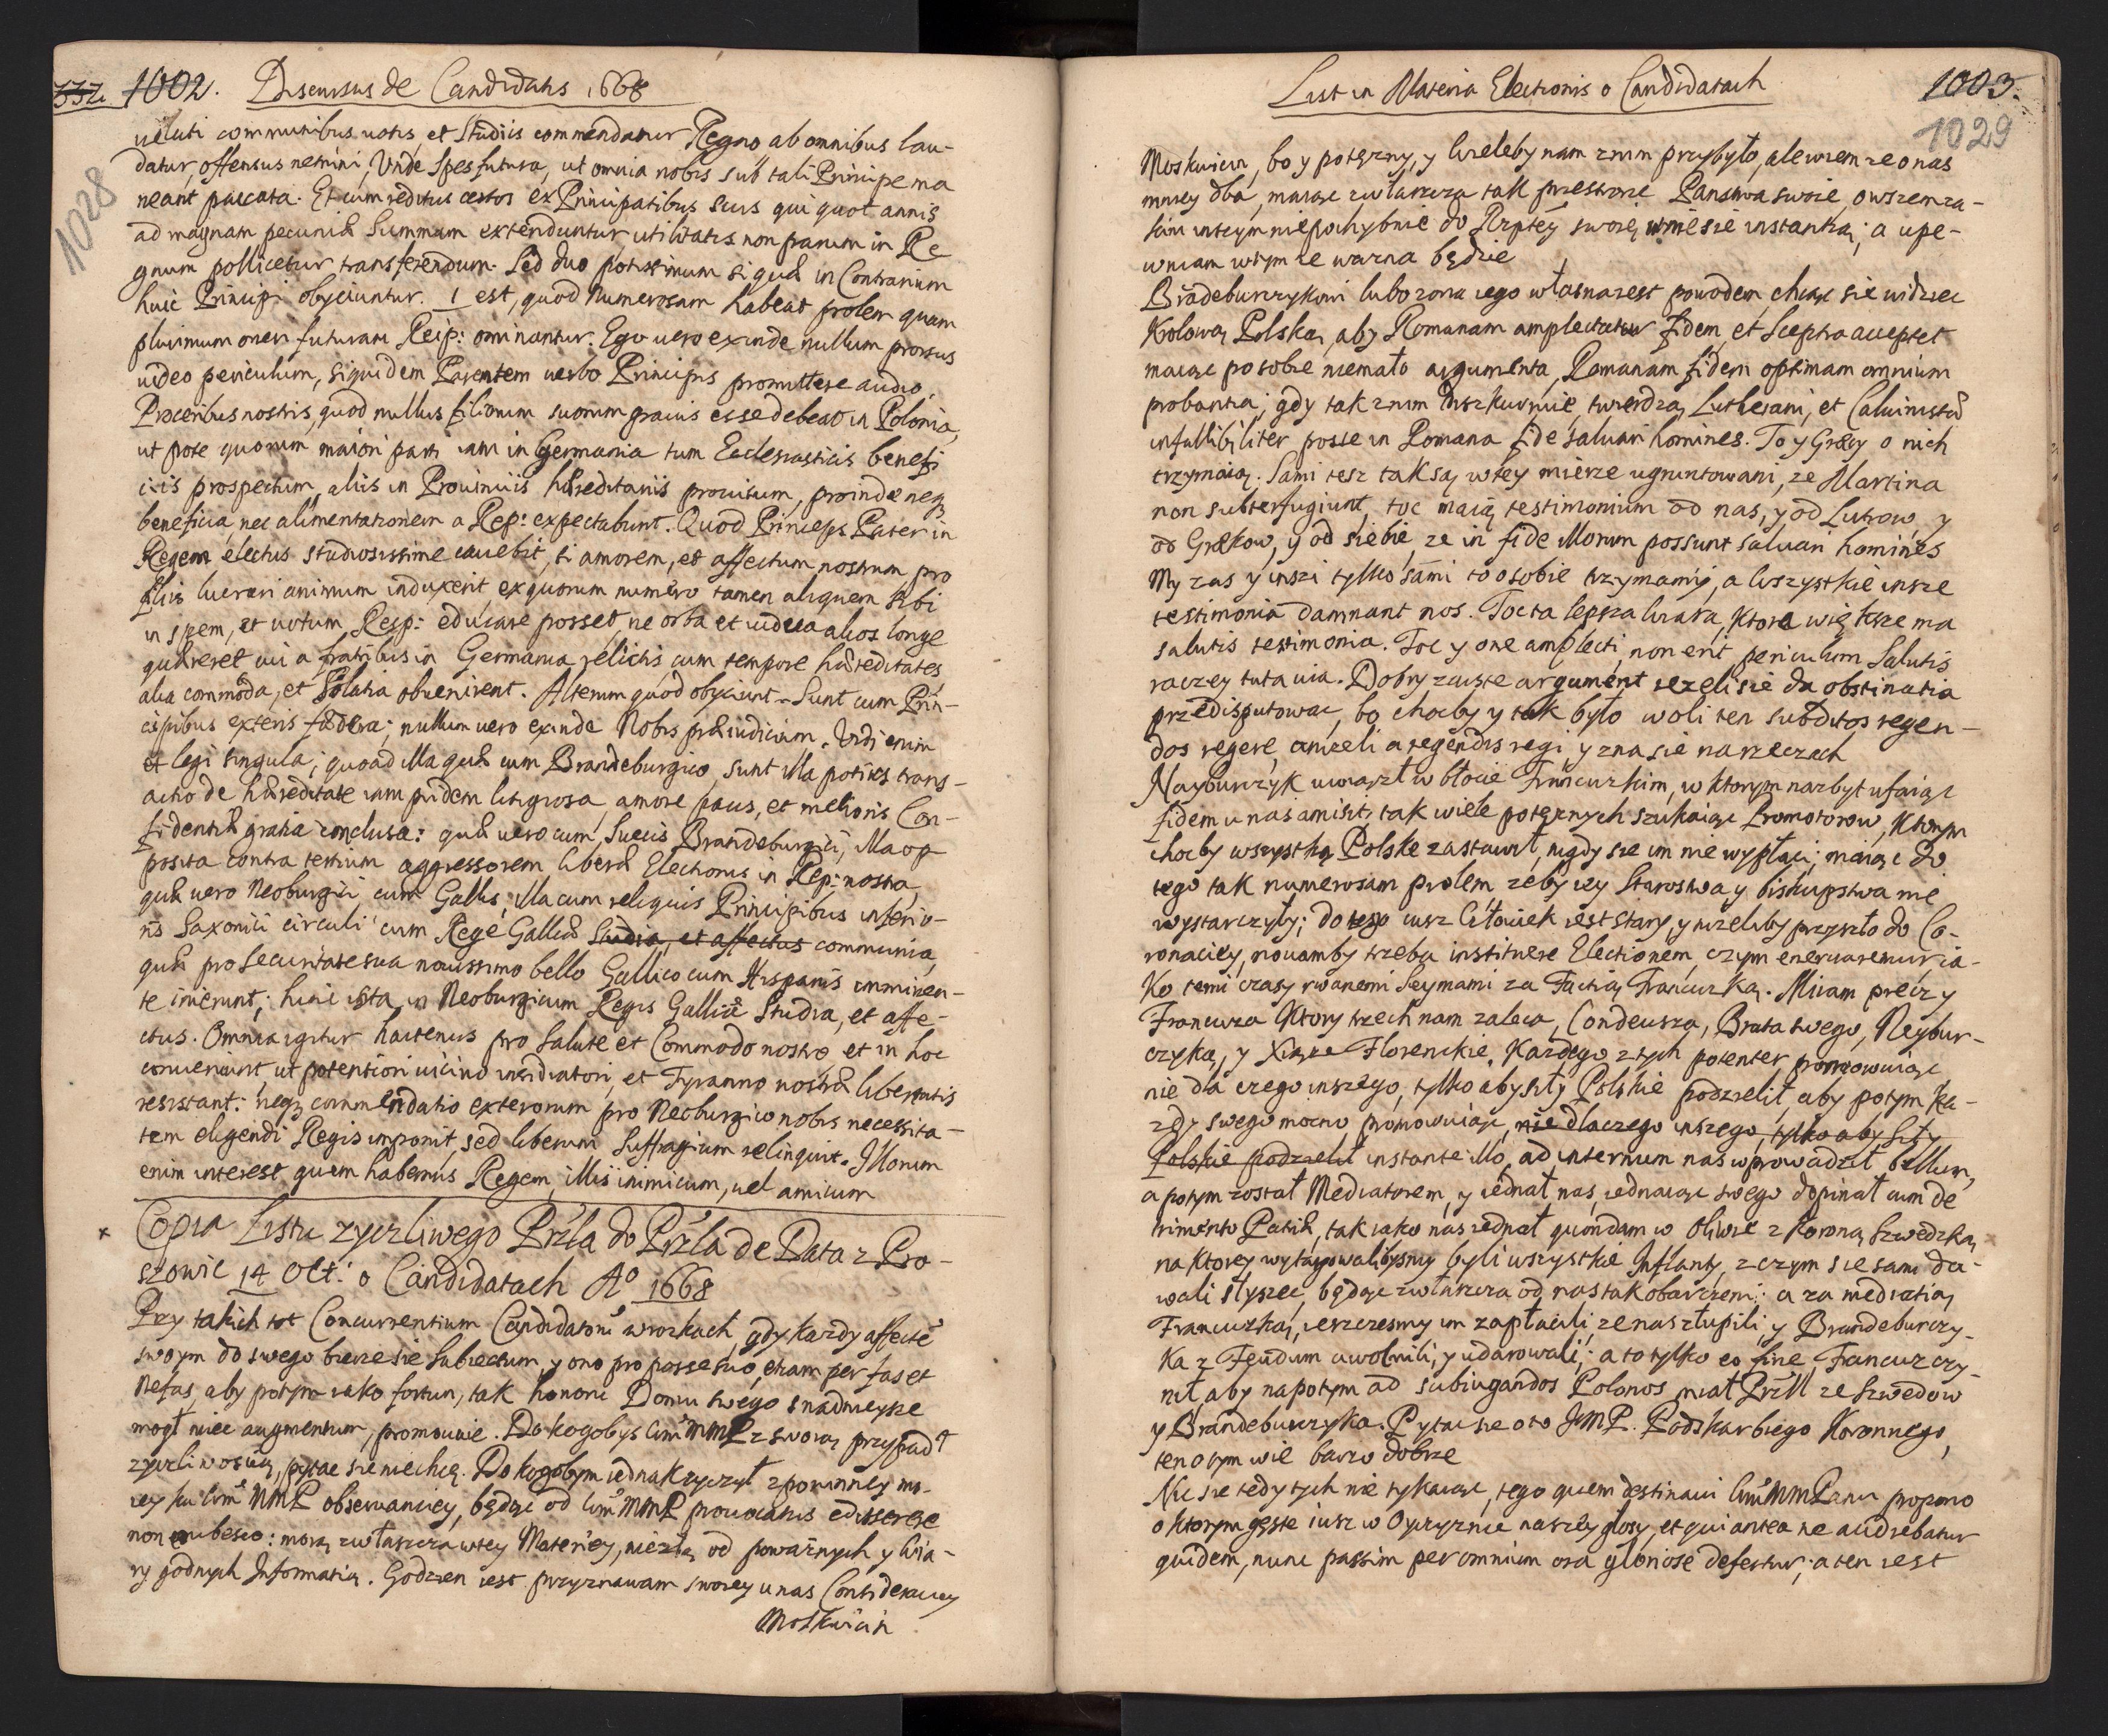 332 1002. Discursus de Candidatis 1668
1028
veluti communibus votis, et Studiis commendatur Regno ab omnibus lau-
datur, offensus nemini, Unde Spes futura, ut omnia nobis sub tali Principe ma
neant paccata. Et cum reditus certos ex Principatibus suis qui quot annis
ad magnam pecuniæ Summam extenduntur utilitatis non parum in Re
gnum pollicetur transferendum. Sed duo potissimum si quæ in Contrarium
huic Principi obyciuntur. 1 est, quod Numerosam habeat prolem quam
plurimum oneri futuram Reip: ominantur. Ego vero exinde nullum prorsus
video periculum, siquidem Parentem verbo Principis promittere audio,
Proceribus nostris, quod nullus filiorum suorum gravis esse debeat in Polonia,
ut pote quorum maiori parti iam in Germania tum Ecclesiasticis benefi
ciis prospectum, aliis in Provinciis hæreditariis provisum, proinde neq3
beneficia, nec alimentationem a Rep: expectabunt. Quod Princeps Pater in
Regem electus studiosissime cavebit, si amorem, et affectum nostrum pro
filiis lucrari animum induxerit ex quorum numero tamen aliquem sibi
in spem, et votum Reip: educare posset, ne orba et vidua alios longe
quæreret cui a fratribus in Germania relictis cum tempore hæreditates
alia commoda, et Solatia obvenirent. Alterum quod obyciunt. Sunt cum Prin-
cipibus exteris fædera; nullum vero exinde Nobis præiudicium. Vidi enim
et legi singula; quoad illa quæ cum Brandeburgico, sunt illa potius trans-
actio de hæreditate iam pridem litigiosa, amore pacis, et melioris Con-
fidentiæ gratia conclusa: quæ vero cum Suecis Brandeburgici, illa op
posita contra tertium aggressorem liberæ Electionis in Rep: nostra,
quæ vero Neoburgici cum Gallis, illa cum reliquis Principibus inferio-
ris Saxonici circuli cum Rege Galliæ Studia, et affectus communia,
quæ pro Securitate sua novissimo bello Gallico cum Hispanis imminen-
te inierunt; hinc ista in Neoburgicum Regis Galliæ Studia, et affe-
ctus. Omnia igitur hactenus pro Salute et Commodo nostro, et in hoc
conveniunt, ut potentiori vicino insidiatori, et Tyranno nostræ libertatis
resistant: neq3 commendatio exterorum pro Neoburgico nobis necessita-
tem eligendi Regis imponit, sed liberum Suffragium relinquit. Illorum
enim interest quem habemus Regem, illis inimicum, vel amicum
x Copia Listu zyczliwego Przła do Przła de Data z Pro-
szowic 14 Oct: o Candidatach Aº 1668
Przy takich tot Concurrentium Candidatoru wrozkach, gdy kazdy affectê
swoym do swego bierze sie Subiectum, y ono pro posse suo, etiam per fas et
Nefas, aby potym iako fortun, tak honori Domu swego snadnieysze
mogł miec augmentum, promouie. Do kogobys MMP z swoią przypadł
zyczliwoscią, pytac sie niechcę. Do kogobym iednak zyczył z powinney mo-
iey ku MMP obserwanciey, będąc od MMP provocatus edisserere
non erubesco: maią zwłaszcza w tey Materiey, niezłą od powaznych y wia-
ry godnych Informatią. Godzien iest przyznawam swoiey u nas Consideraciey
Moskwicin
List in Materia Electionis o Candidatach 1003.
1029
Moskwicin, bo y potęzny, y wieleby nam z nim przybyło, ale wiem ze o nas
mniey dba, maiąc zwłaszcza tak przestrone Panstwa swoie, owszem za-
sam wtym niepochybnie do Rzptey swoię wniesie instantią; a upe-
wniam w tym ze wazna będzie
Brādeburczykowi lubo zona iego własna iest powodem, chcąc sie widziec
Krolową Polską, aby Romanam amplectatur fidem, et Sceptra acceptet
maiąc po sobie niemało argumenta, Romanam fidem optimam omnium
probantia; gdy tak z nim diszkuruie, twierdzą Lutherani, et Calvinistæ
infallibiliter posse in Romana fide salvari homines. To y Græcy o nich
trzymaią. Sami tesz tak są w tey mierze ugruntowani, ze Martina
non subterfugiunt, toc maią testimonium od nas, y od Lutrow, y
od Grækow, y od siebie, ze in fide illorum possunt salvari homines
My zas y inszi tylko sami to o sobie trzymamy, a wszystkie insze
testimonia damnant nos. Toc ta lepsza wiara, ktora większe ma
salutis testimonia. Toc y one amplecti, non erit periculum Salutis
raczey tuta via. Dobry zaiste argument iezeli sie da obstinatia
przedisputowac, bo chocby y tak było woli ten subditos regen-
dos regere, anizeli a regendis regi y zna sie na rzeczach
Nayburczyk uwiązł w błocie Francuzkim, w ktorym nazbyt ufaiąc
fidem u nas amisit, tak wiele potęznych szukaiąc Promotorow, ktorym
chocby wszystkę Polske zastawił, nigdy sie im nie wypłaci; maiąc do
tego tak numerosam prolem zeby iey Starostwa y biskupstwa nie
wystarczyły; do tego iusz Człowiek iest stary, y nizeliby przyszło do Co-
ronaciey, novamby trzeba instituere Electionem, czym enervaremur ia-
ko temi czasy rwanemi Seymami za Factią Francuzką. Miiam precz y
Francuza ktory trzech nam zaleca, Condeusza, Brata swego, Neybur-
czyka, y Xiąze Florenckie, kazdego z tych potenter promowuiąc
nie dla czego inszego, tylko aby siły Polskie podzielił, aby potym ka-
zdy swego mocno promowuiąc, nie dlaczego inszego, tylko aby siły
Polskie podzielił instante illo, ad internum nas wprowadził bellum,
a potym został Mediatorem, y iednał nas, iednaiąc swego dopinał cum de
trimento Patriæ, tak iako nas iednał quondam w Oliwie z koroną Szwedzką
na ktorey wytargowalibysmy byli wszystkie Inflanty, z czym sie sami da-
wali słyszec, będąc zwłaszcza od nas tak obarczeni: a za mediatią
Francuzką, ieszczesmy im zapłacili, ze nas złupili, y Brandeburczy-
ka z Feudum uwolnili, y udarowali; a to tylko eo fine Francuz czy-
nił, aby napotym ad subiugandos Polonos miał Przil ze Szwedow
y Brandeburczyka. Pytac sie o to JMP. Podskarbiego Koronnego,
ten o tym wie barzo dobrze
Nic sie tedy tych nie tykaiąc, tego quem destinavi MMPanu propono
o ktorym gęste iusz w Oyczyznie naszey głosy, et qui antea ne audiebatur
quidem, nunc passim per omnium ora gloriose defertur; a ten iest